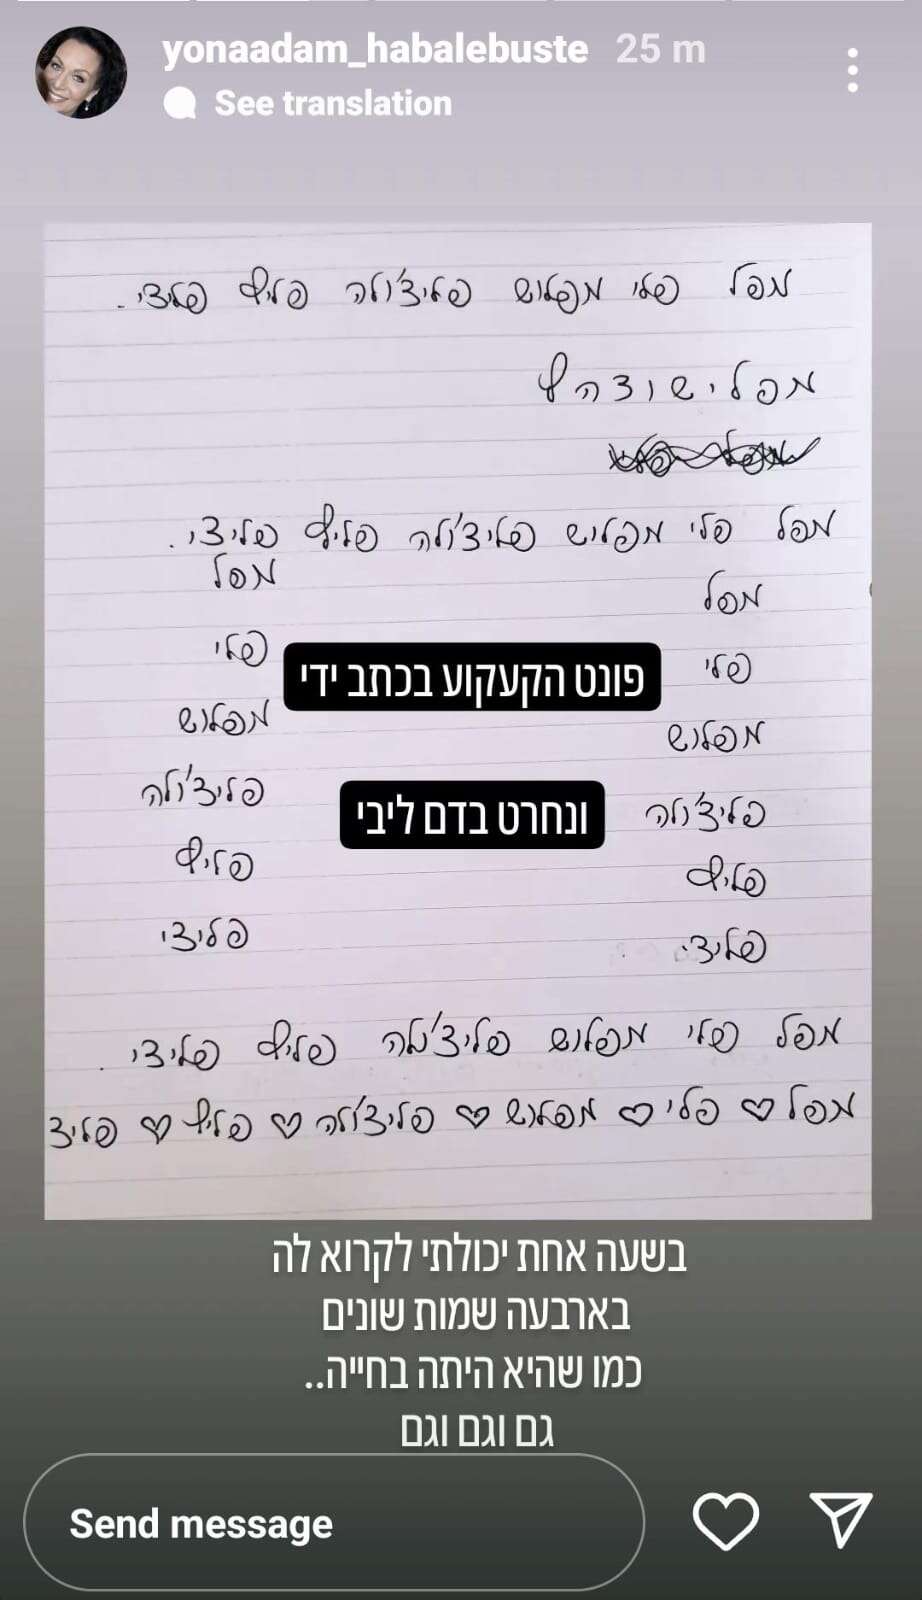 yonaadam_habalebuste 25 m
See translation
מפל פלי מפלוש פליצ'ולה פליף פליצי.
מ פ ל י ש ו צ ה ף
מפל פלי מפליש פליצ'ולה פליף פליצי.
מפל
מפל
פלי
פלי
פונט הקעקוע בכתב ידי
מפלוש
מפלוש
פליצ'ולה
פליצ'ולה
ונחרט בדם ליבי
פליף
פליף
פליצי
פליצי
מפל פלי מפלוש פליצ'ולה פליף פליצי.
מפל ♡ פלי ♡ מפלוש ♡ פליצ'ולה ♡ פליף ♡ פליצ
בשעה אחת יכולתי לקרוא לה
בארבעה שמות שונים
כמו שהיא היתה בחייה..
גם וגם וגם
Send message